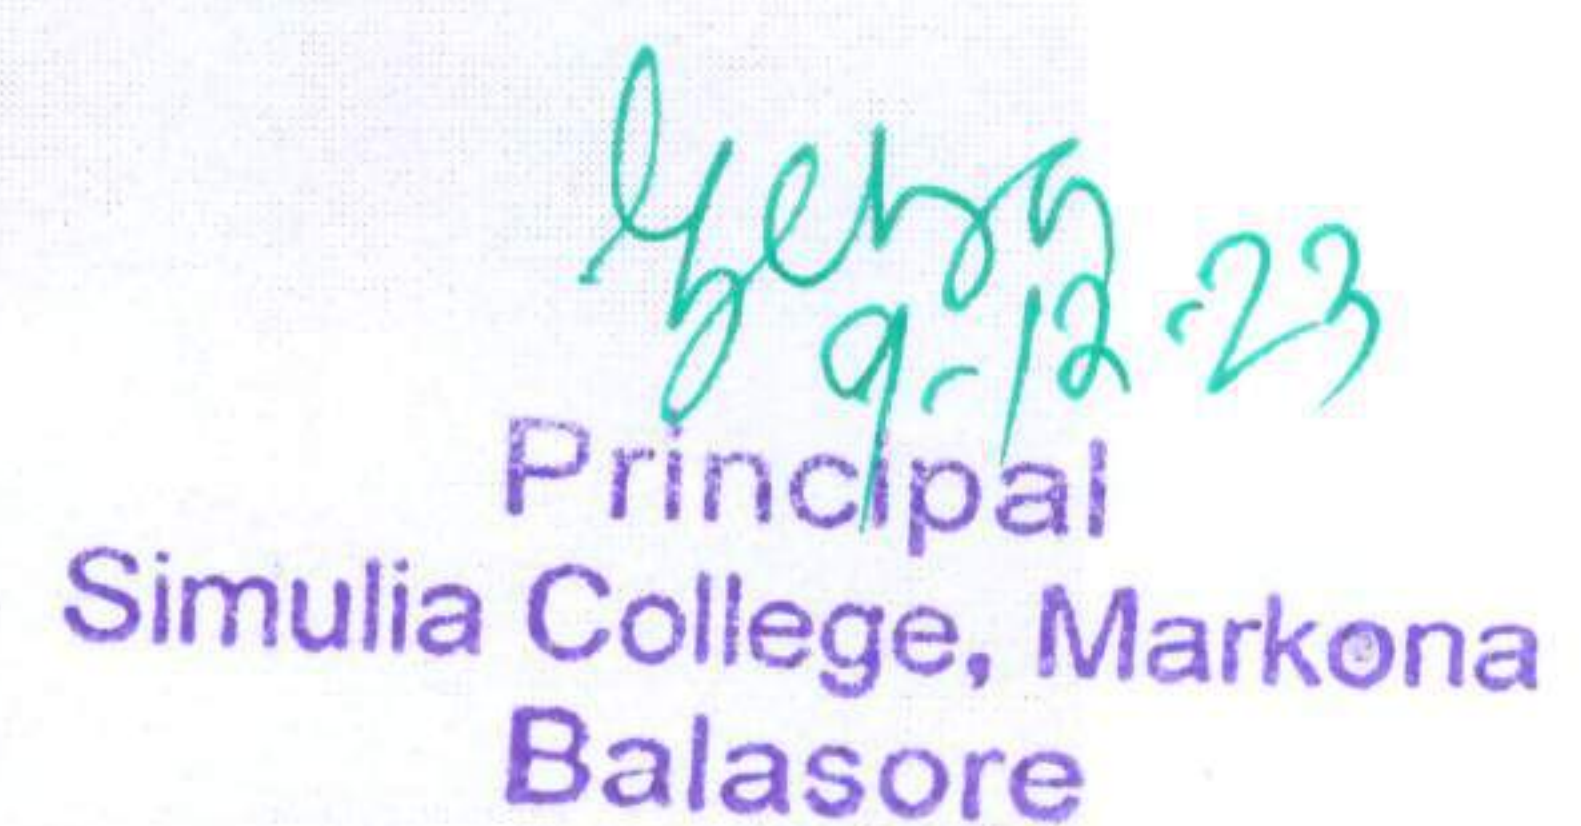 9-12-23
Principal
Simulia College, Markona
Balasore